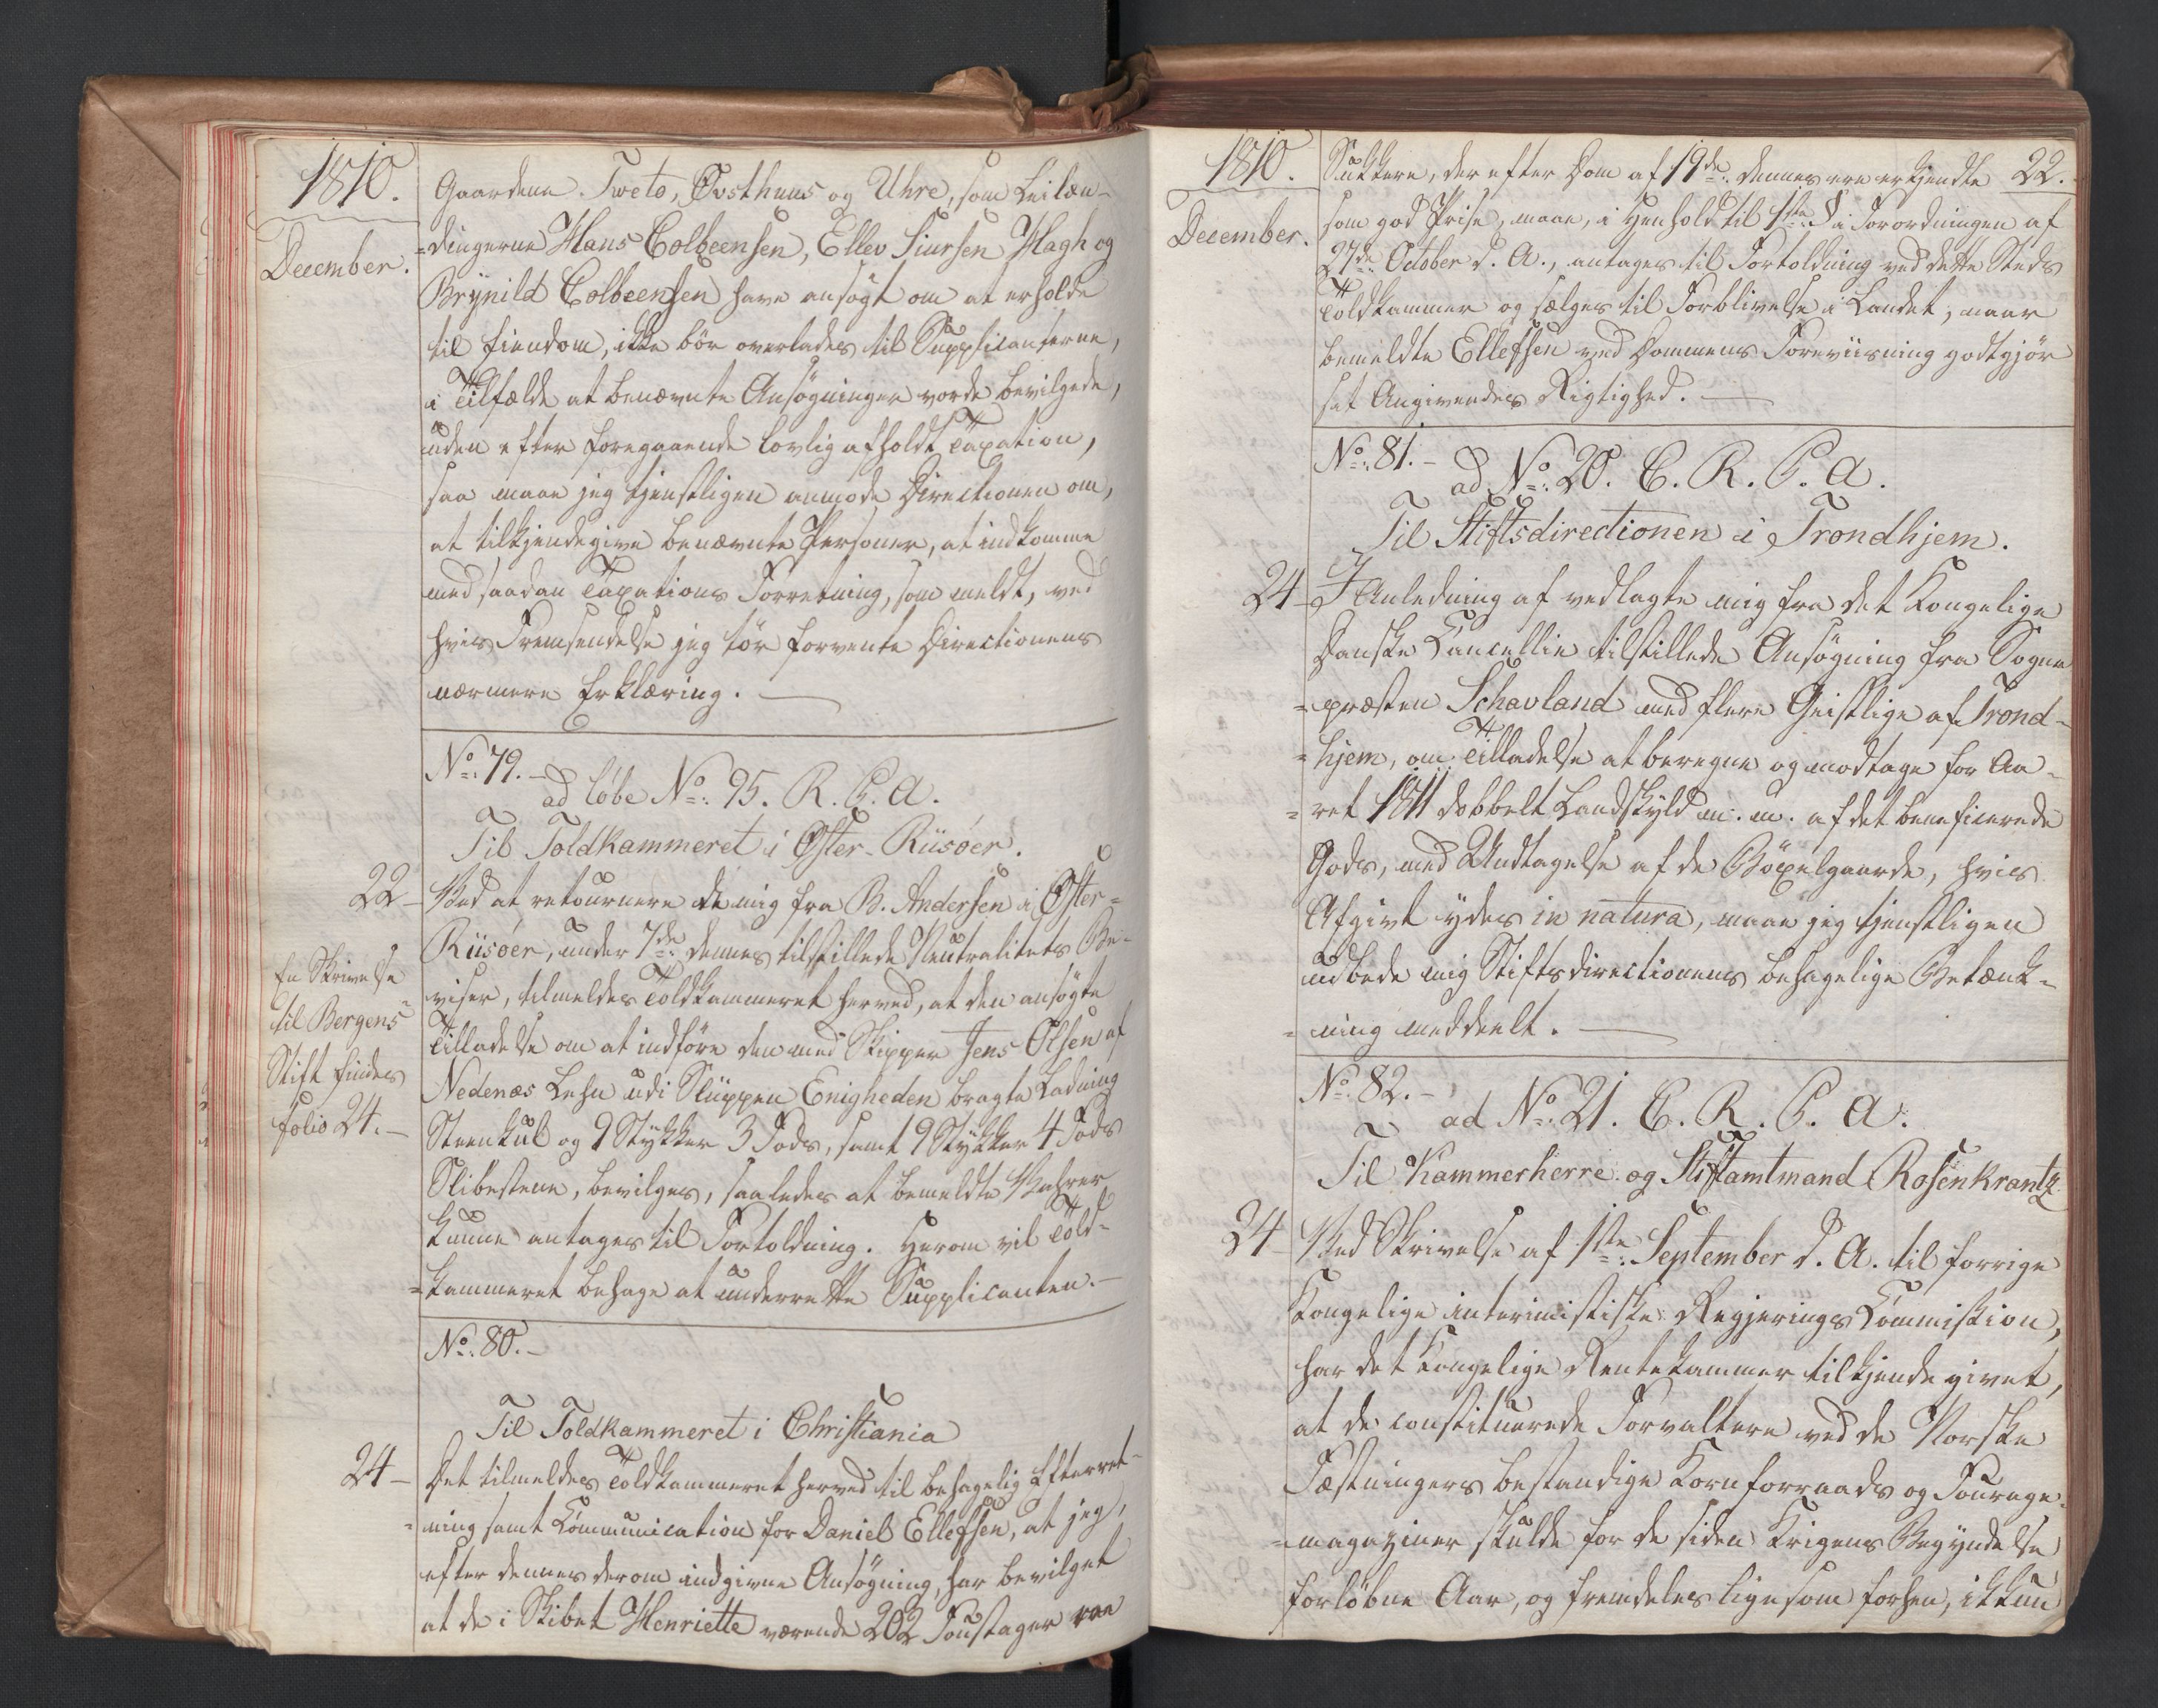 1810.
December.
Gaardene Tweto, Øvsthuus og Uhre, som Leilæn-
=dingerne Hans Colbeensen, Ellev Siursen Hagh og
Brÿnild Colbeensen have ansøgt om at erholde
til Eiendom, ikke bør overlades til Supplicanterne,
i Tilfælde at benævnte Ansøgninger vorde bevilgede,
uden efter foregaaende lovlig afholdt Taxation,
saa maae jeg tjenstligen anmode Directionen om,
at tilkjendegive benævnte Personer, at indkomme
med saadan Taxations Forretning, som meldt, ved
hvis Fremsendelse jeg tør forvente Directionens
nærmere Erklæring.
No. 79.-
ad løbe No. 95. R. P. A.
Til Toldkammeret i Øster-Riisøer.
22-
Ved at retournere de mig fra B. Andersen i Øster=
Riisøer, under 7de dennes tilstillede Neutralitets Be-
viser, tilmeldes Toldkammeret herved, at den ansøgte
Tilladelse om at indføre den med Skipper Jens Olsen af
Nedenæs Lehn udi Sluppen Enigheden bragte Ladning
Steenkul og 9 Stykker 3 Fods, samt 19 Stykker 4 Fods
Slibestene, bevilges, saaledes at bemeldte Vahrer
kunne antages til Fortoldning. Herom vil Told-
=kammeret behage at underrette Supplicanten.-
En Skrivelse
til Bergens
Stift findes
folio 24.-
No. 80.-
Til Toldkammeret i Christiania
24-
Det tilmeldes Toldkammeret herved til behagelig Efterret-
=ning samt Communication for Daniel Ellefsen, at jeg,
efter dennes derom indgivne Ansøgning, har bevilget
at de i Skibet Henriette værende 202 Foustager raae
1810.
December.
22.
Sukkere, der efter Dom af 19de dennes ere erkjendte
som god Prise, maae, i Henhold til 1ste § i Forordningen af
27de October d. A., antages til Fortoldning ved dette Steds
Toldkammer og sælges til Forblivelse i Landet, naar
bemeldte Ellefsen ved Dommens Foreviisning godtgjør
sit Angivendes Rigtighed.
No. 81.-
ad No. 20. C. R. P. A.
Til Stiftsdirectionen i Trondhjem.
24-
I Anledning af vedlagte mig fra det Kongelige
Danske Cancellie tilstillede Ansøgning fra Sogne
=præsten Schavland med flere Geistlige af Trond-
=hjem, om Tilladelse at beregne og modtage for Aa-
=ret 1811 dobbelt Landskyld m. m. af det beneficerede
Gods, med Undtagelse af de Böxelgaarde, hvis
Afgivt ydes in natura, maae jeg tjenstligen
udbede mig Stiftsdirectionens behagelige Betænk-
=ning meddeelt.
No. 82.-
ad No. 21. C. R. P. A.
Til Kammerherre og Stiftamtmand Rosenkrantz
24-
Ved Skrivelse af 1ste September d. A. til forrige
Kongelige interimistiske Regjerings Commission,
har det Kongelige Rentekammer tilkjendegivet,
at de constituerede Forvaltere ved de Norske
Fæstningers bestandige Kornforraads og Fourage-
=magaziner skulde for de siden Krigens Begyndelse
forløbne Aar, og fremdeles ligesom forhen, ikkun